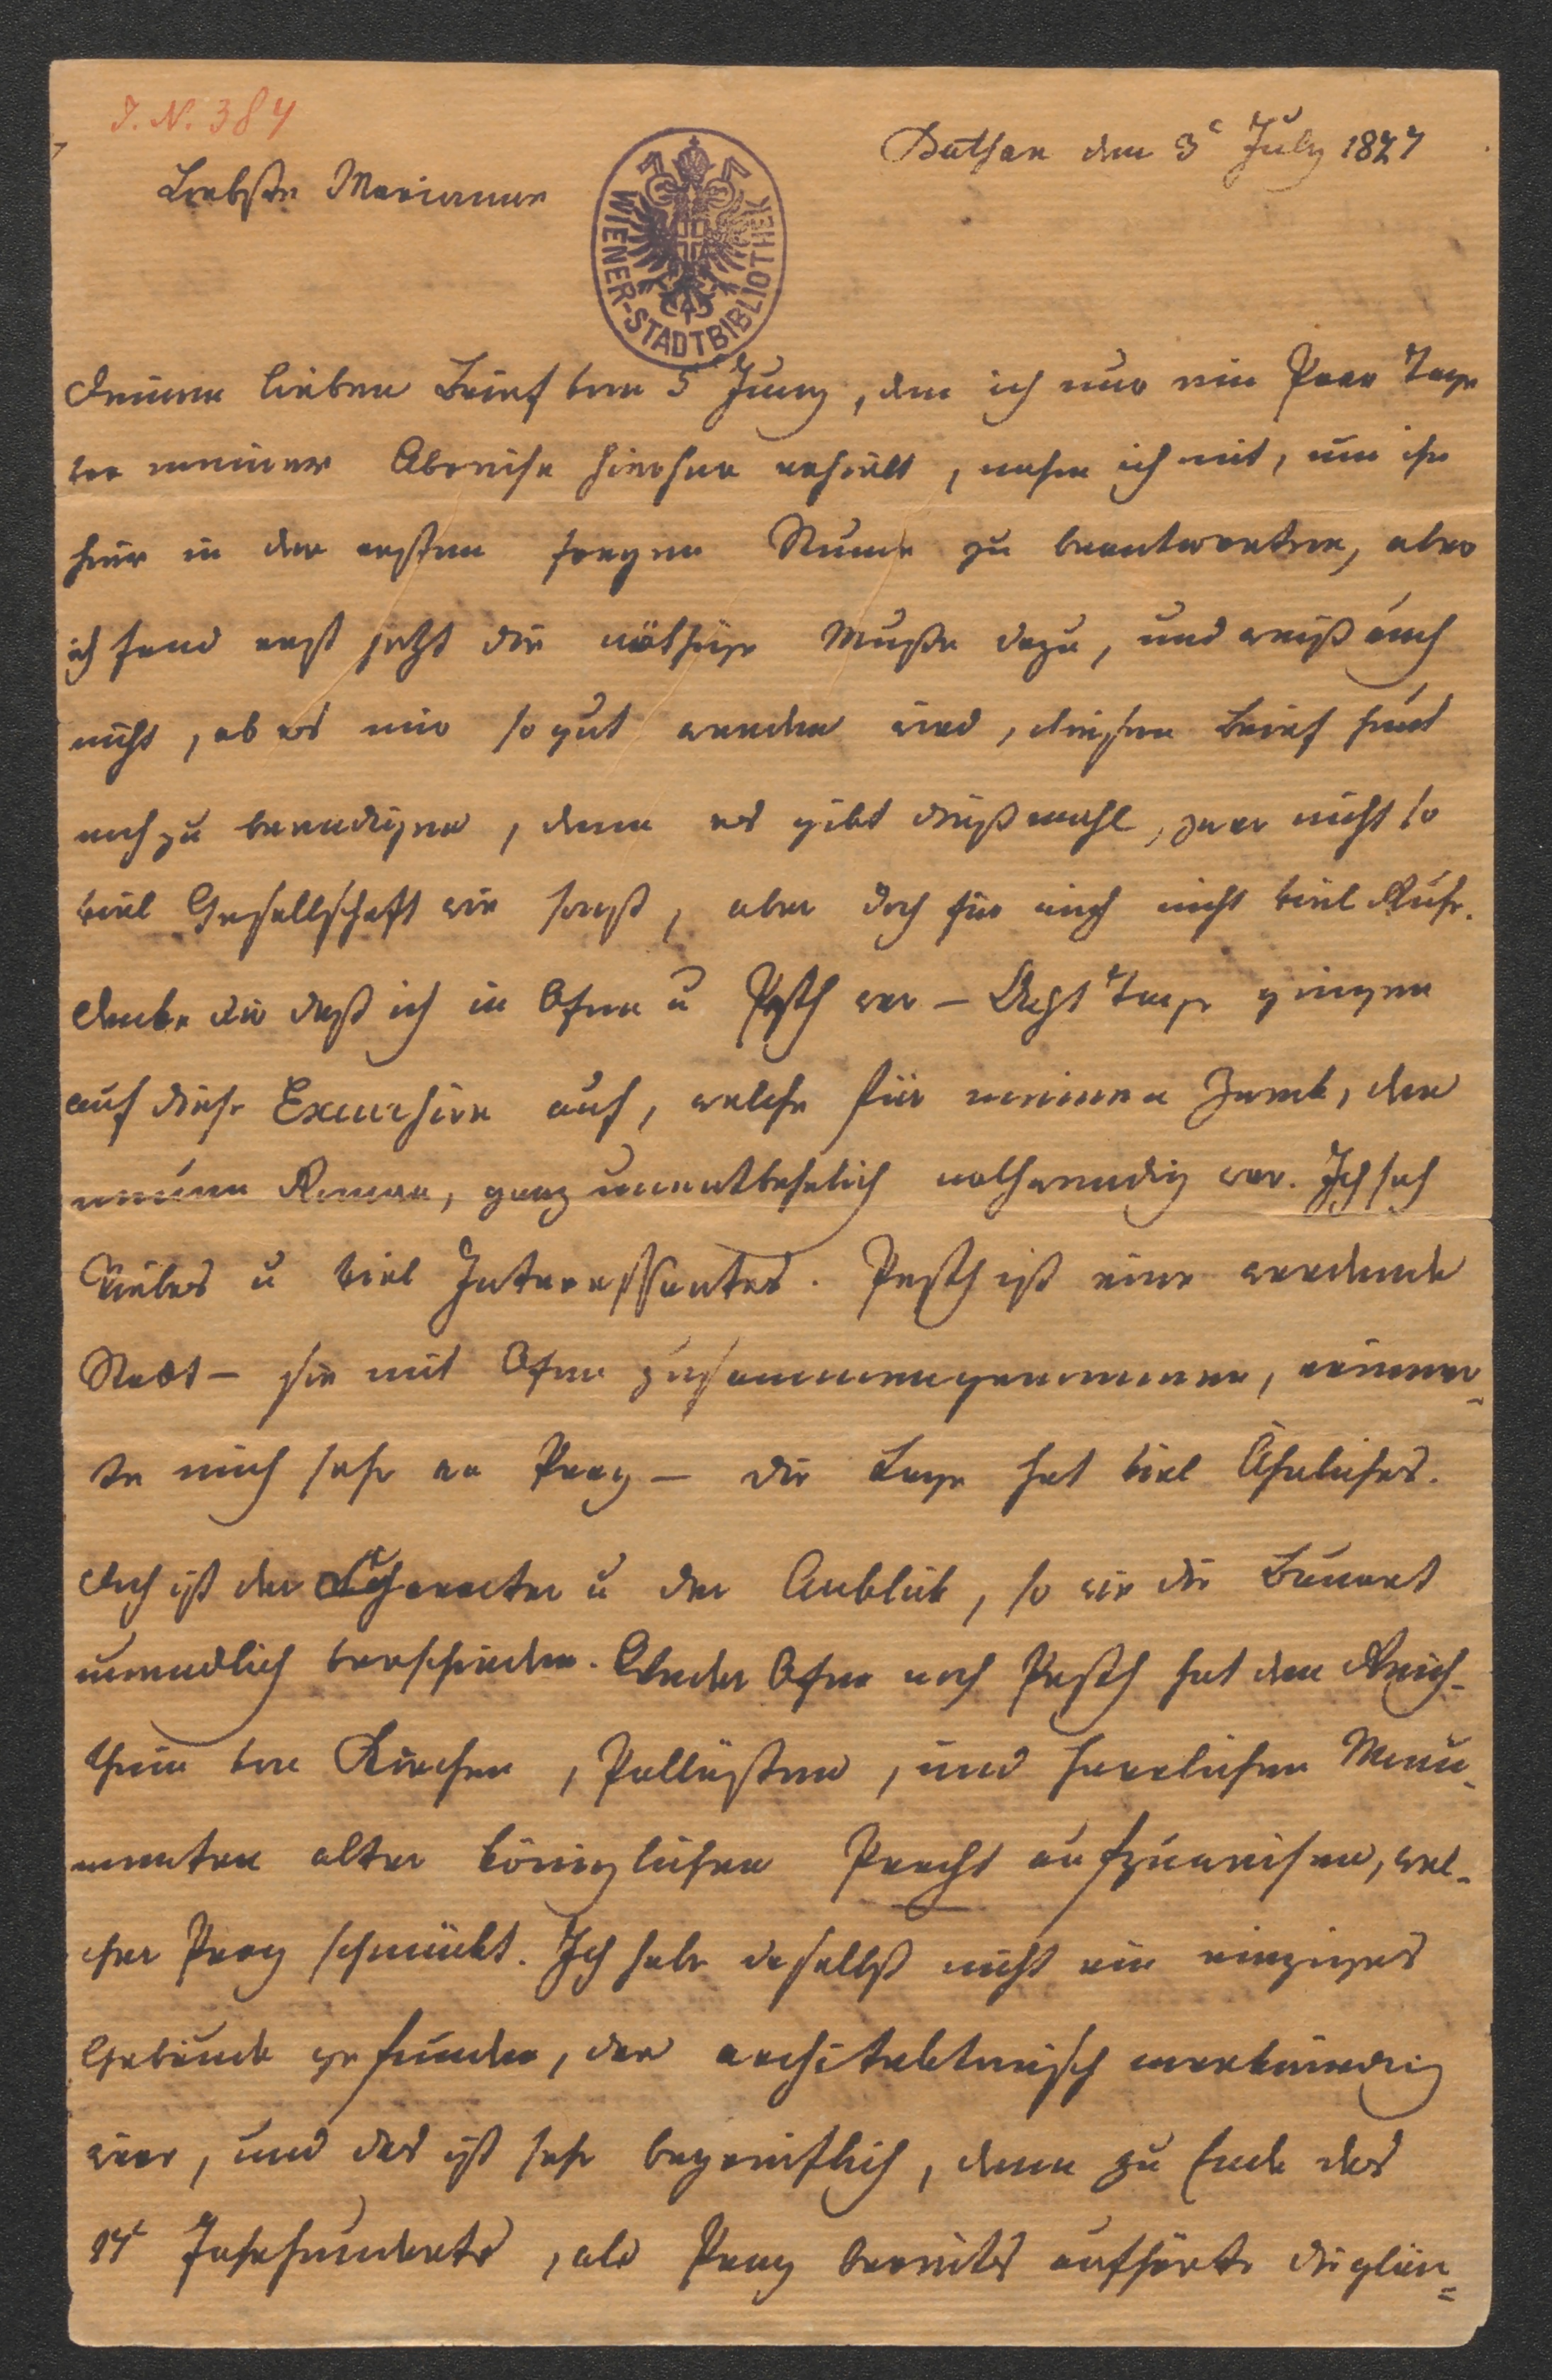 J. N. 384
Bathan den 3t July 1827
Liebste Marianne
WIENER-STADTBIBLIOTHEK
Deinen lieben Brief vom 5t Juny, den ich nur ein Paar Tage
vor meiner Abreise hierher erhielt, nahm ich mit, um ihn
hier in der ersten freyen Stunde zu beantworten, aber
ich fand erst jetzt die nöthige Muße dazu, und weiß auch
nicht, ob es mir so gut werden wird, diesen Brief heut
noch zu beendigen, denn es gibt dießmahl, zwar nicht so
viel Gesellschaft wie sonst, aber doch für mich nicht viel Ruhe.
Denke dir daß ich in Ofen u Pesth war – Acht Tage gingen
auf diese Excursion auf, welche für meinen Zweck, den
neuen Roman, ganz unentbehrlich nothwendig war. Ich sah
Vieles u viel Interessantes. Pesth ist eine werdende
Stadt – sie mit Ofen zusammengenommen, erinner-
te mich sehr an Prag – die Lage hat viel Ähnliches.
Doch ist der Character u der Anblick, so wie die Bauart
unendlich verschieden. Weder Ofen noch Pesth hat den Reich-
thum von Kirchen, Pallästen, und herrlichen Monu-
menten alter königlicher Pracht aufzuweisen, wel-
cher Prag schmückt. Ich habe daselbst nicht ein einziges
Gebäude gefunden, das architektonisch merkwürdig
wäre, und das ist sehr begreiflich, denn zu Ende des
17t Jahrhunderts, als Prag bereits aufhörte die glän=